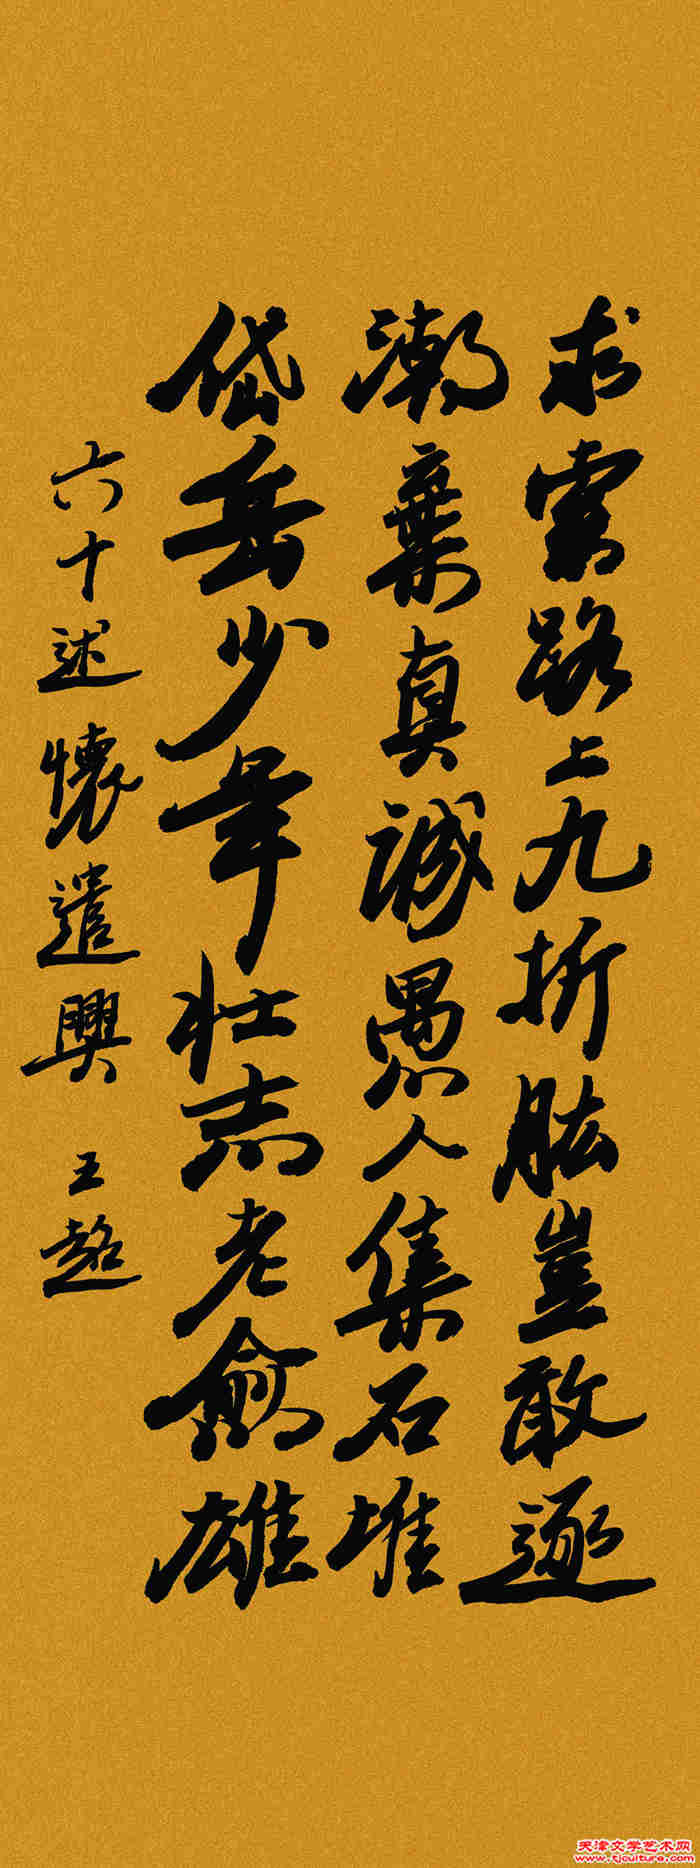 求索路上九折肱豈敢逐
潮棄真誠愚人集石堆
岱岳少年壯志老愈雄
六十述懷遣興 王超
天津文学艺术网
www.tjculture.com